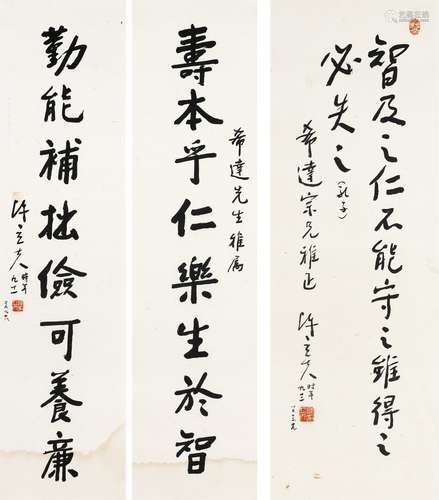 智及之仁不能守之雖得之
必失之（孔子）
希達宗兄雅正
陳立夫時年
希達先生雅屬
壽本乎仁樂生於智
勤能補拙儉可養廉
陳立夫時年九十一